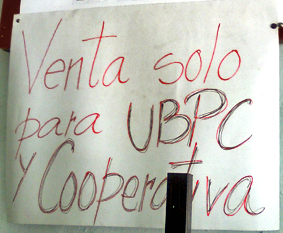 Venta solo
para UBPC
y Cooperativa